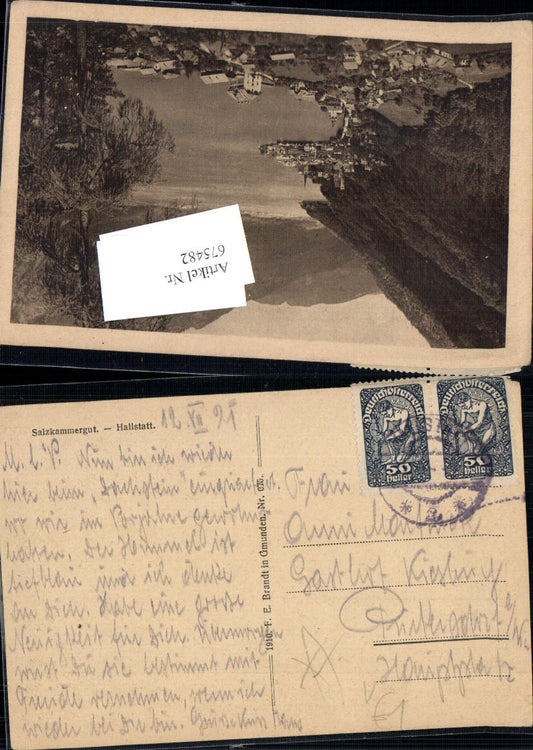 Artikel Nr.
675482
Salzkammergut. — Hallstatt.
12 VII 21
M. L. P. Nun bin ich wieder
hier beim „Dachstein" einquartiert
wo wir im Vorjahre gewohnt
haben. Der Himmel ist
tiefblau und ich denke
an Dich. Habe eine große
Neuigkeit für Dich. Übermorgen
wirst Du sie bestimmt mit
Freude vernehmen, wenn ich
wieder bei Dir bin.
1910. F. E. Brandt in Gmunden, Nr.
Deutschösterreich
50
heller
Deutschösterreich
50
heller
Frau
Anna
Gasthof
Hauptplatz